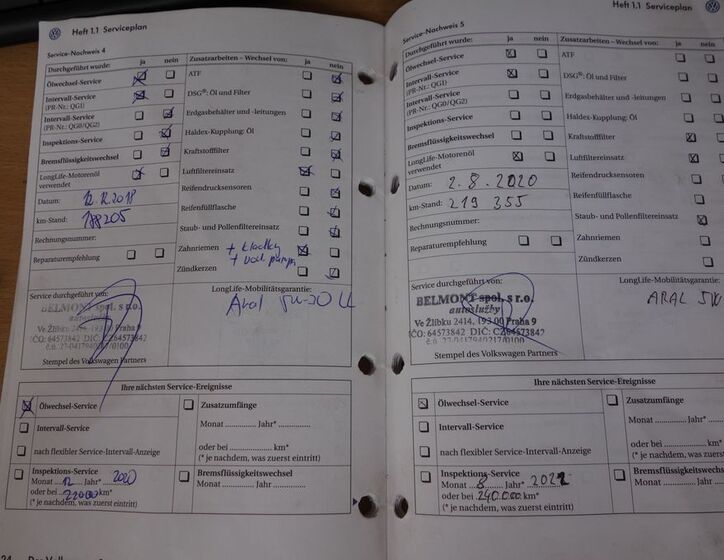 Heft 1.1 Serviceplan
Service-Nachweis 4
Durchgeführt wurde: ja nein
Ölwechsel-Service
Intervall-Service
(PR-Nr.: QG1)
Intervall-Service
(PR-Nr.: QG0/QG2)
Inspektions-Service
Bremsflüssigkeitswechsel
LongLife-Motorenöl
verwendet
Datum: 12.12.2018
km-Stand: 188205
Rechnungsnummer:
Reparaturempfehlung
Zusatzarbeiten – Wechsel von: ja nein
ATF
DSG®: Öl und Filter
Erdgasbehälter und -leitungen
Haldex-Kupplung: Öl
Kraftstofffilter
Luftfiltereinsatz
Reifendrucksensoren
Reifenfüllflasche
Staub- und Pollenfiltereinsatz
Zahnriemen + kladky
+ vod. pumpa
Zündkerzen
Service durchgeführt von:
BELMONT spol. s r.o.
autoslužby
Ve Žlíbku 2414, 193 00 Praha 9
IČO: 64573842 DIČ: CZ64573842
Stempel des Volkswagen Partners
LongLife-Mobilitätsgarantie:
Aral 5W-30 LL
Ihre nächsten Service-Ereignisse
Ölwechsel-Service
Intervall-Service
nach flexibler Service-Intervall-Anzeige
Inspektions-Service
Monat 12 Jahr* 2020
oder bei 22000 km*
(* je nachdem, was zuerst eintritt)
Zusatzumfänge
Monat Jahr*
oder bei km*
(* je nachdem, was zuerst eintritt)
Bremsflüssigkeitswechsel
Monat Jahr
24
Heft 1.1 Serviceplan
Service-Nachweis 5
Durchgeführt wurde: ja nein
Ölwechsel-Service
Intervall-Service
(PR-Nr.: QG1)
Intervall-Service
(PR-Nr.: QG0/QG2)
Inspektions-Service
Bremsflüssigkeitswechsel
LongLife-Motorenöl
verwendet
Datum: 2.8.2020
km-Stand: 219 355
Rechnungsnummer:
Reparaturempfehlung
Zusatzarbeiten – Wechsel von: ja
ATF
DSG®: Öl und Filter
Erdgasbehälter und -leitungen
Haldex-Kupplung: Öl
Kraftstofffilter
Luftfiltereinsatz
Reifendrucksensoren
Reifenfüllflasche
Staub- und Pollenfiltereinsatz
Zahnriemen
Zündkerzen
Service durchgeführt von:
BELMONT spol. s r.o.
autoslužby
Ve Žlíbku 2414, 193 00 Praha 9
IČO: 64573842 DIČ: CZ64573842
Stempel des Volkswagen Partners
LongLife-Mobilitätsgarantie:
ARAL 5W
Ihre nächsten Service-Ereignisse
Ölwechsel-Service
Intervall-Service
nach flexibler Service-Intervall-Anzeige
Inspektions-Service
Monat 8 Jahr*
oder bei 240.000 km*
(* je nachdem, was zuerst eintritt)
Zusatzumfänge
Monat
oder bei
(* je nachdem, was
Bremsflüssigkeits
Monat